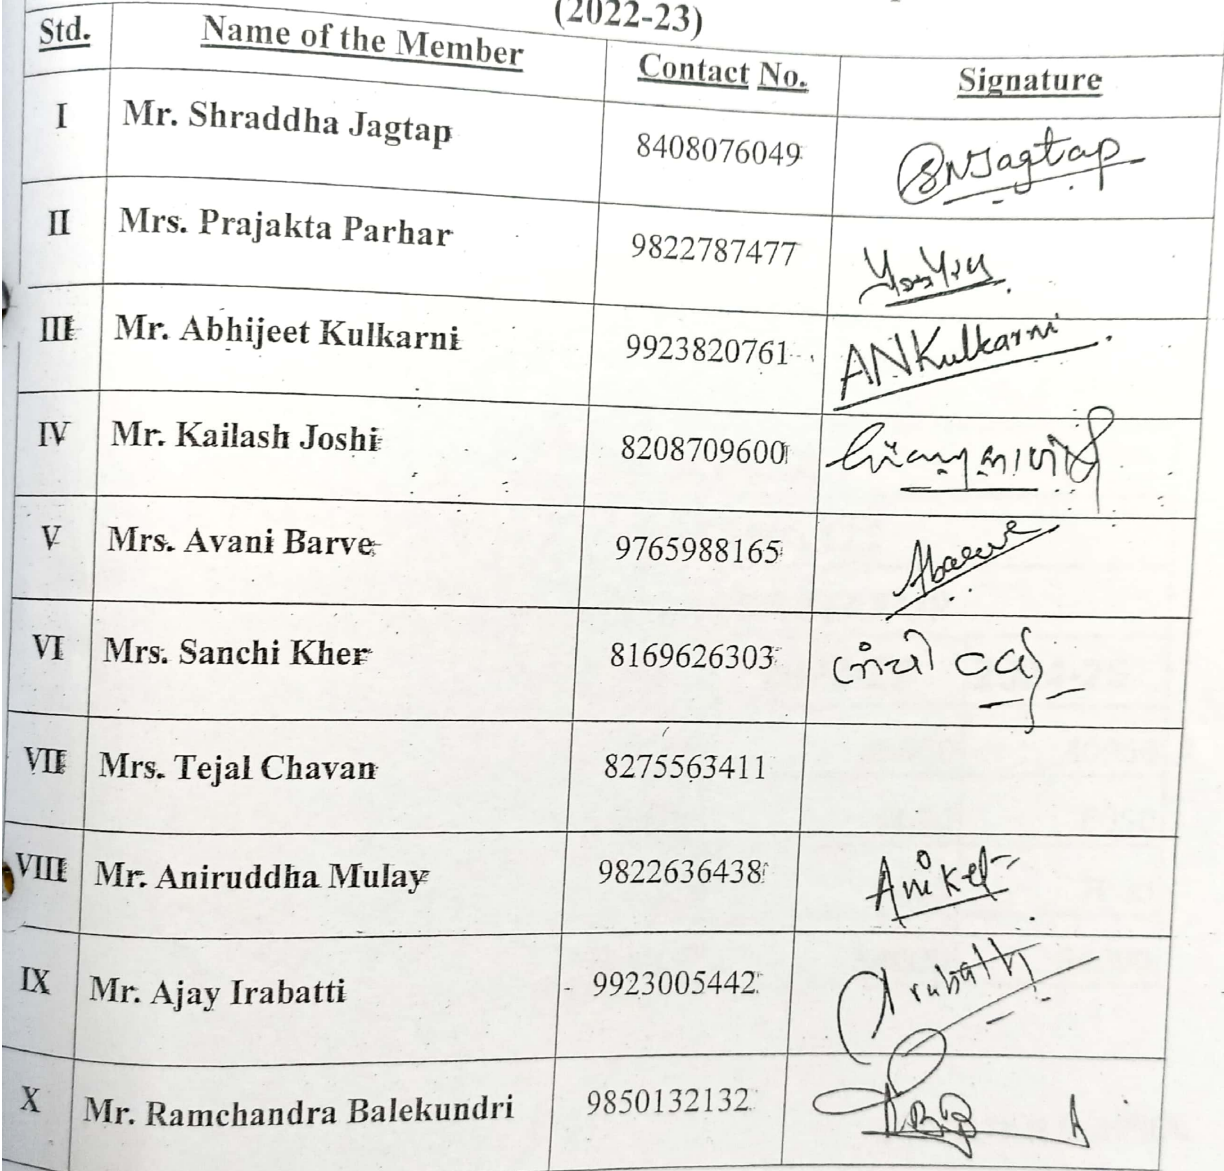 (2022-23)
Std. Name of the Member Contact No. Signature
I Mr. Shraddha Jagtap 8408076049 SNJagtap
II Mrs. Prajakta Parhar 9822787477
III Mr. Abhijeet Kulkarni 9923820761 ANKulkarni
IV Mr. Kailash Joshi 8208709600
V Mrs. Avani Barve 9765988165 Abarve
VI Mrs. Sanchi Kher 8169626303
VII Mrs. Tejal Chavan 8275563411
VIII Mr. Aniruddha Mulay 9822636438 Aniket
IX Mr. Ajay Irabatti 9923005442
X Mr. Ramchandra Balekundri 9850132132